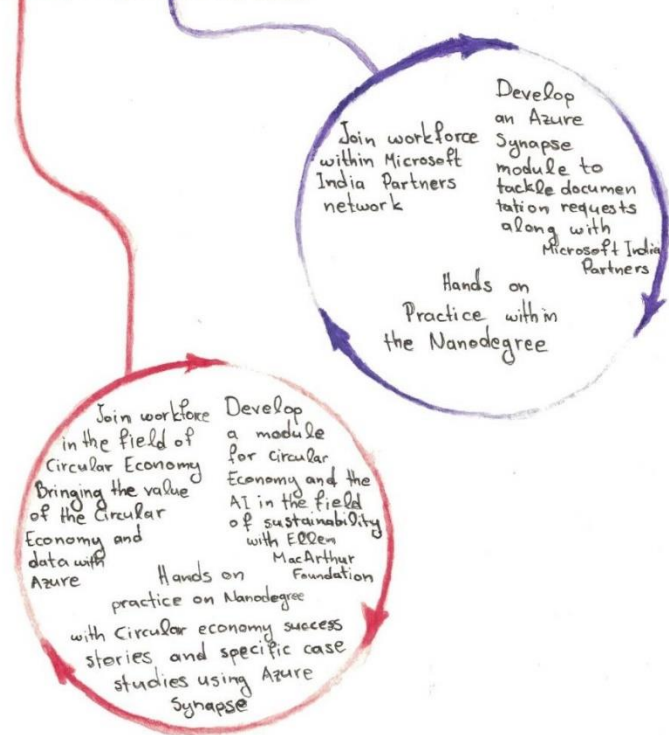 Join workforce
within Microsoft
India Partners
network
Develop
an Azure
Synapse
module to
tackle documen
tation requests
along with
Microsoft India
Partners
Hands on
Practice within
the Nanodegree
Join workforce
in the field of
Circular Economy
Bringing the value
of the Circular
Economy and
data with
Azure
Develop
a module
for circular
Economy and the
AI in the field
of sustainability
with Ellen
MacArthur
Foundation
Hands on
practice on Nanodegree
with Circular economy success
stories and specific case
studies using Azure
Synapse